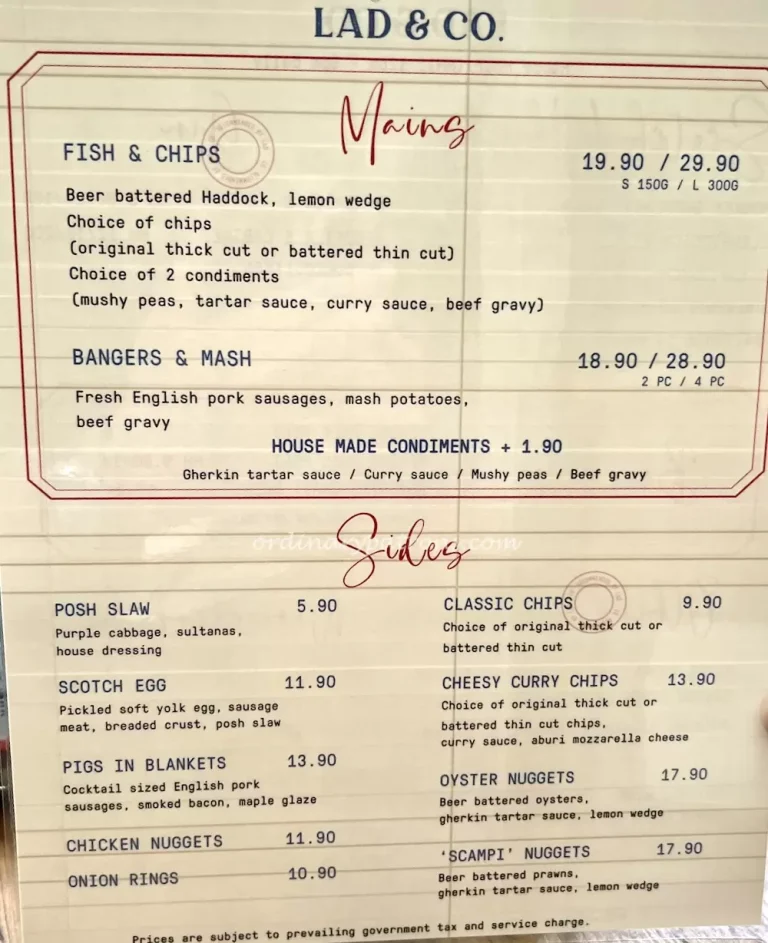 LAD & CO.
Mains
FISH & CHIPS 19.90 / 29.90
S 150G / L 300G
Beer battered Haddock, lemon wedge
Choice of chips
(original thick cut or battered thin cut)
Choice of 2 condiments
(mushy peas, tartar sauce, curry sauce, beef gravy)
BANGERS & MASH 18.90 / 28.90
2 PC / 4 PC
Fresh English pork sausages, mash potatoes,
beef gravy
HOUSE MADE CONDIMENTS + 1.90
Gherkin tartar sauce / Curry sauce / Mushy peas / Beef gravy
Sides
POSH SLAW 5.90
Purple cabbage, sultanas,
house dressing
SCOTCH EGG 11.90
Pickled soft yolk egg, sausage
meat, breaded crust, posh slaw
PIGS IN BLANKETS 13.90
Cocktail sized English pork
sausages, smoked bacon, maple glaze
CHICKEN NUGGETS 11.90
ONION RINGS 10.90
CLASSIC CHIPS 9.90
Choice of original thick cut or
battered thin cut
CHEESY CURRY CHIPS 13.90
Choice of original thick cut or
battered thin cut chips,
curry sauce, aburi mozzarella cheese
OYSTER NUGGETS 17.90
Beer battered oysters,
gherkin tartar sauce, lemon wedge
'SCAMPI' NUGGETS 17.90
Beer battered prawns,
gherkin tartar sauce, lemon wedge
Prices are subject to prevailing government tax and service charge.